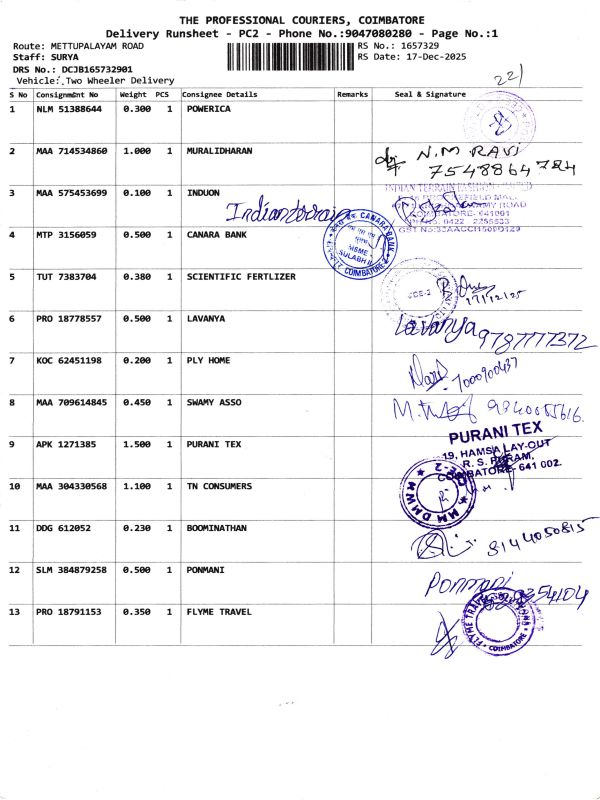 THE PROFESSIONAL COURIERS, COIMBATORE
Delivery Runsheet - PC2 - Phone No.:9047080280 - Page No.:1
Route: METTUPALAYAM ROAD
Staff: SURYA
DRS No.: DCJB165732901
Vehicle: Two Wheeler Delivery
RS No.: 1657329
RS Date: 17-Dec-2025
22/
S No Consignment No Weight PCS Consignee Details Remarks Seal & Signature
1 NLM 51388644 0.300 1 POWERICA
2 MAA 714534860 1.000 1 MURALIDHARAN N.M RAVI
7548864784
3 MAA 575453699 0.100 1 INDUON
Indianterrain
COIMBATORE- 641001
4 MTP 3156059 0.500 1 CANARA BANK
CANARA BANK
MSME
SULABH
COIMBATORE
5 TUT 7383704 0.380 1 SCIENTIFIC FERTLIZER
17/12/25
6 PRO 18778557 0.500 1 LAVANYA Lavanya 9787777372
7 KOC 62451198 0.200 1 PLY HOME 7000900437
8 MAA 709614845 0.450 1 SWAMY ASSO
9 APK 1271385 1.500 1 PURANI TEX
PURANI TEX
19, HAMSA LAY-OUT
R. S. PURAM,
COIMBATORE- 641 002.
10 MAA 304330568 1.100 1 TN CONSUMERS
11 DDG 612052 0.230 1 BOOMINATHAN 8144050815
12 SLM 384879258 0.500 1 PONMANI Ponmani
13 PRO 18791153 0.350 1 FLYME TRAVEL
FLYME TRAVEL
COIMBATORE